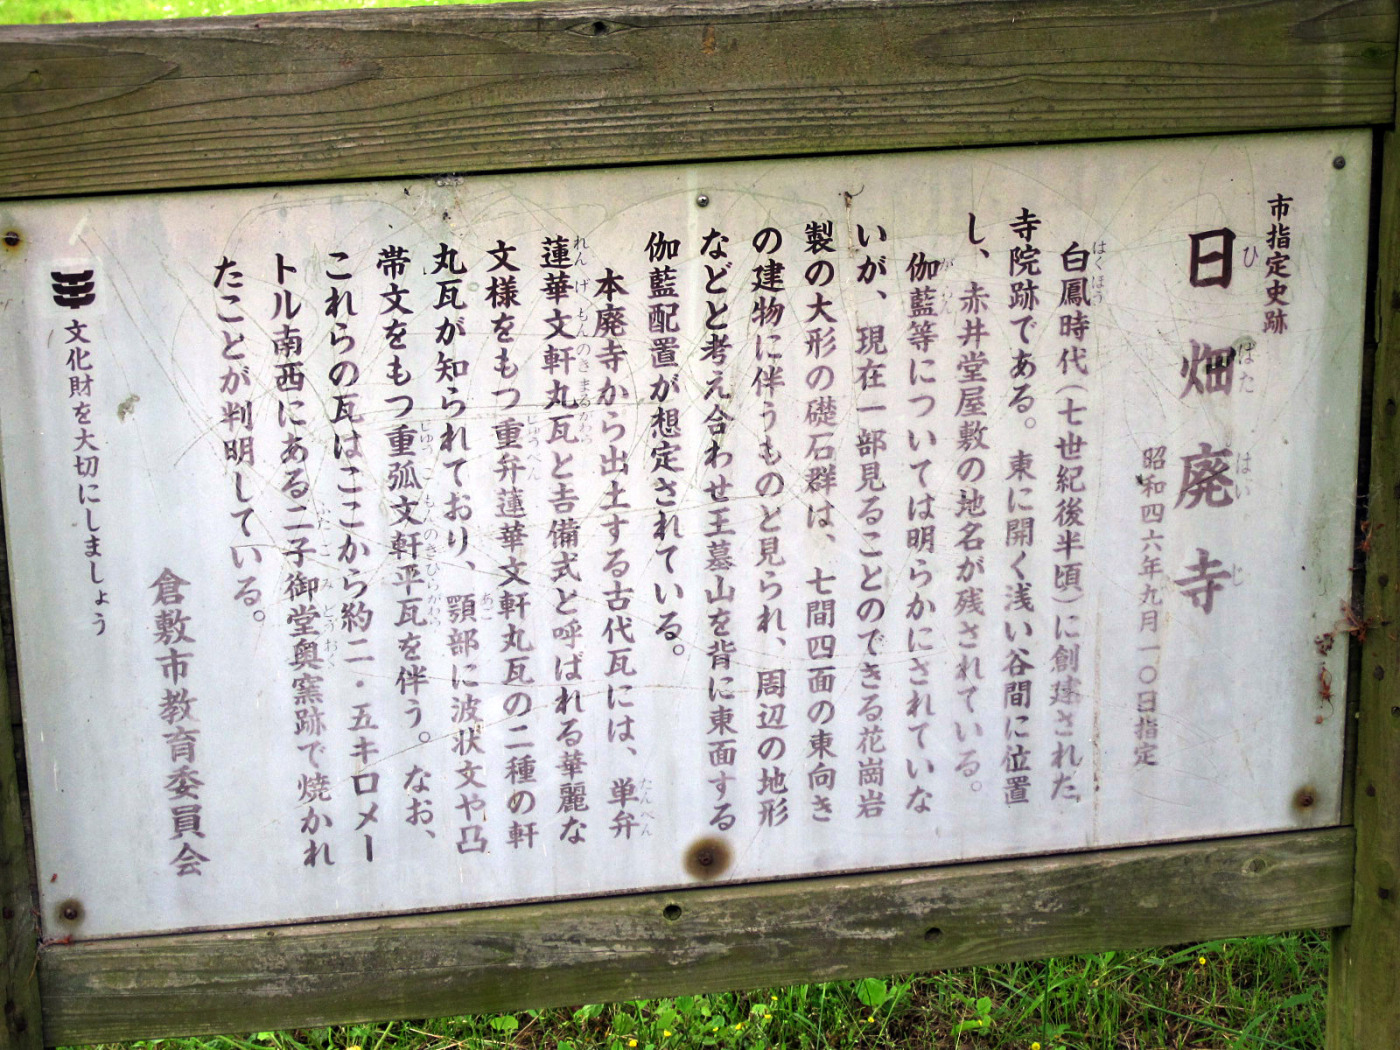 市指定史跡
日畑廃寺
昭和四六年九月一〇日指定
白鳳時代（七世紀後半頃）に創建された
寺院跡である。東に開く浅い谷間に位置
し、赤井堂屋敷の地名が残されている。
伽藍等については明らかにされていな
いが、現在一部見ることのできる花崗岩
製の大形の礎石群は、七間四面の東向き
の建物に伴うものと見られ、周辺の地形
などと考え合わせ王墓山を背に東面する
伽藍配置が想定されている。
本廃寺から出土する古代瓦には、単弁
蓮華文軒丸瓦と吉備式と呼ばれる華麗な
文様をもつ重弁蓮華文軒丸瓦の二種の軒
丸瓦が知られており、顎部に波状文や凸
帯文をもつ重弧文軒平瓦を伴う。なお、
これらの瓦はここから約二・五キロメー
トル南西にある二子御堂奥窯跡で焼かれ
たことが判明している。
倉敷市教育委員会
文化財を大切にしましょう